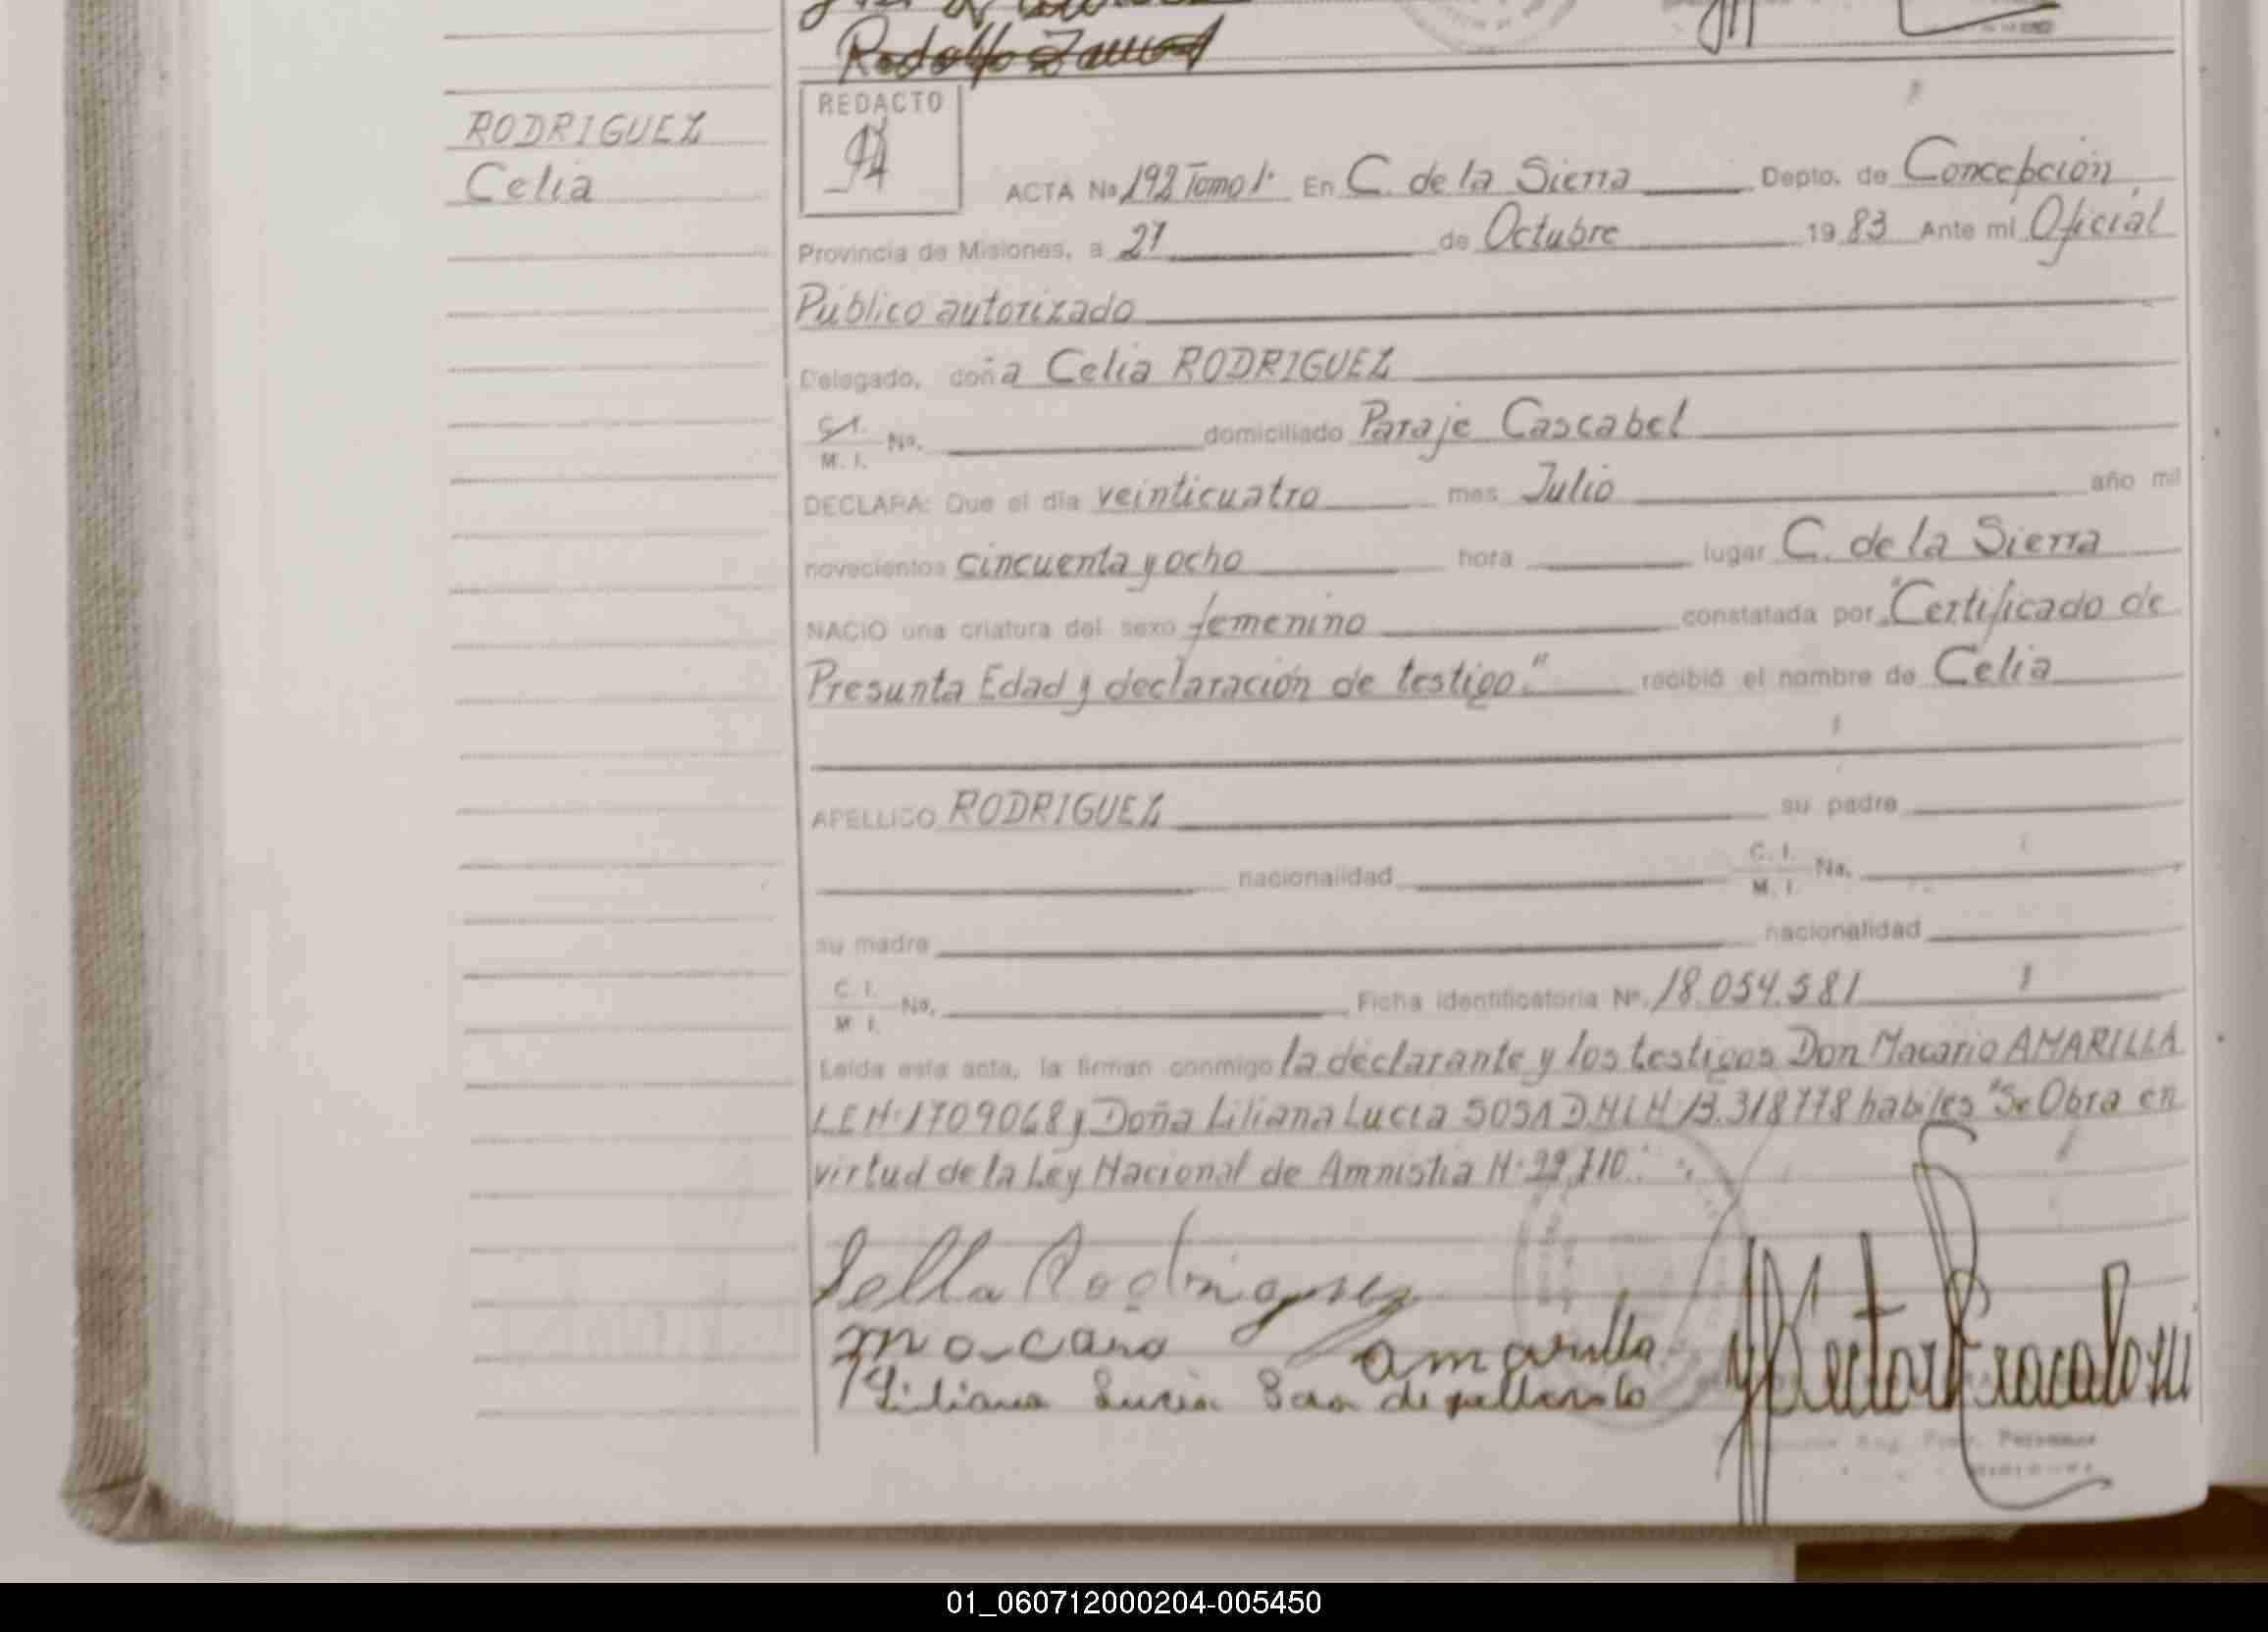 Rodolfo
RODRIGUEZ
Celia
REDACTO
ACTA No 192 Tomo 1° En C. de la Sierra Depto. de Concepción,
Provincia de Misiones, a 27 de Octubre 19 83 Ante mi Oficial
Público autorizado
Delegado, doña Celia RODRIGUEZ
C.I. M. I. No. domiciliado Paraje Cascabel
DECLARA: Que el día veinticuatro mes Julio año mil
novecientos cincuenta y ocho hora lugar C. de la Sierra
NACIO una criatura del sexo femenino constatada por "Certificado de
Presunta Edad y declaración de testigo." recibió el nombre de Celia
APELLIDO RODRIGUEZ su padre
nacionalidad C. I. M. I. No.
su madre nacionalidad
C. I. M. I. No. Ficha identificatoria Nº. 18.054.581
Leída esta acta, la firman conmigo la declarante y los testigos Don Macario AMARILLA
L.E.N° 1709068 y Doña Liliana Lucia SOSA D.N.I.N° 13.318778 habiles "Se Obra en
virtud de la Ley Nacional de Amnistia N° 22.710."
Rodriguez
amarilla
Liliana Lucia Sosa de
Personas
01_060712000204-005450